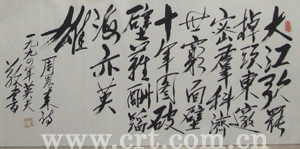 大江歌罷
掉頭東邃
密群科濟
世窮面壁
十年圖破
壁難酬蹈
海亦英
雄
周恩来詩
一九九〇年
www.crt.com.cn